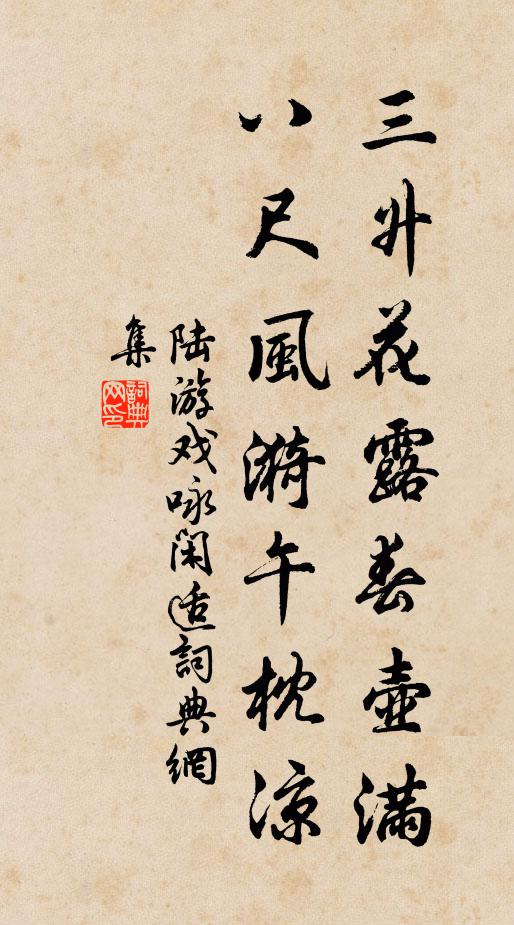 三升花露春壶满
八尺風漪午枕凉
陆游戏咏闲适詞典網
集
詞典网印